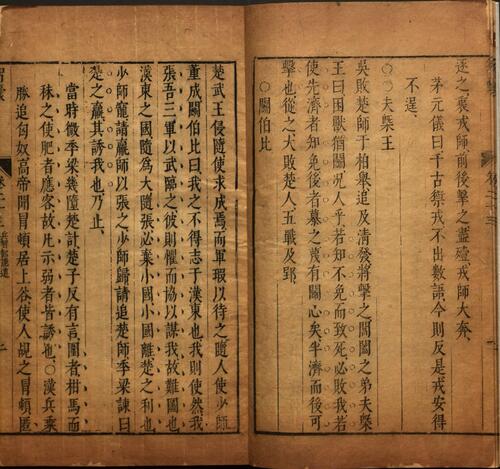 逐之衷戎師前後擊之盡殪戎師大奔
茅元儀曰千古禦戎不出數語今則反是戎安得
不逞
○○夫槩王
吳敗楚師于柏舉追及清發將擊之闔閭之弟夫槩
王曰困獸猶鬬况人乎若知不免而致死必敗我若
使先濟者知免後者慕之蔑有鬬心矣半濟而後可
擊也從之大敗楚人五戰及郢
○鬬伯比
楚武王侵隨使求成焉而軍瑕以待之隨人使少師
董成鬬伯比曰我之不得志于漢東也我則使然我
張吾三軍以武臨之彼則懼而協以謀我故難圖也
漢東之國隨爲大隨張必棄小國小國離楚之利也
少師寵請羸師以張之少師歸請追楚師季梁諫曰
楚之羸其誘我也乃止
當時微季梁幾墮楚計楚子反有言圍者柑馬而
秣之使肥者應客故凡示弱者皆誘也○漢兵乘
勝追匈奴高帝聞冒頓居上谷使人覘之冒頓匿
智囊
卷二十三